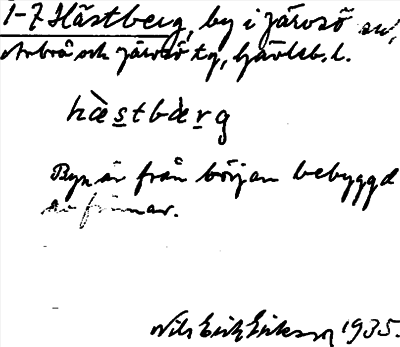 1-7 Hästberg, by i Järvsö sn,
Arbrå och Järvsö tg, Gävleb. l.
hæ̀stbæ̀rg
Byn är från början bebyggd
av finnar.
Nils Erik Eriksson 1935.